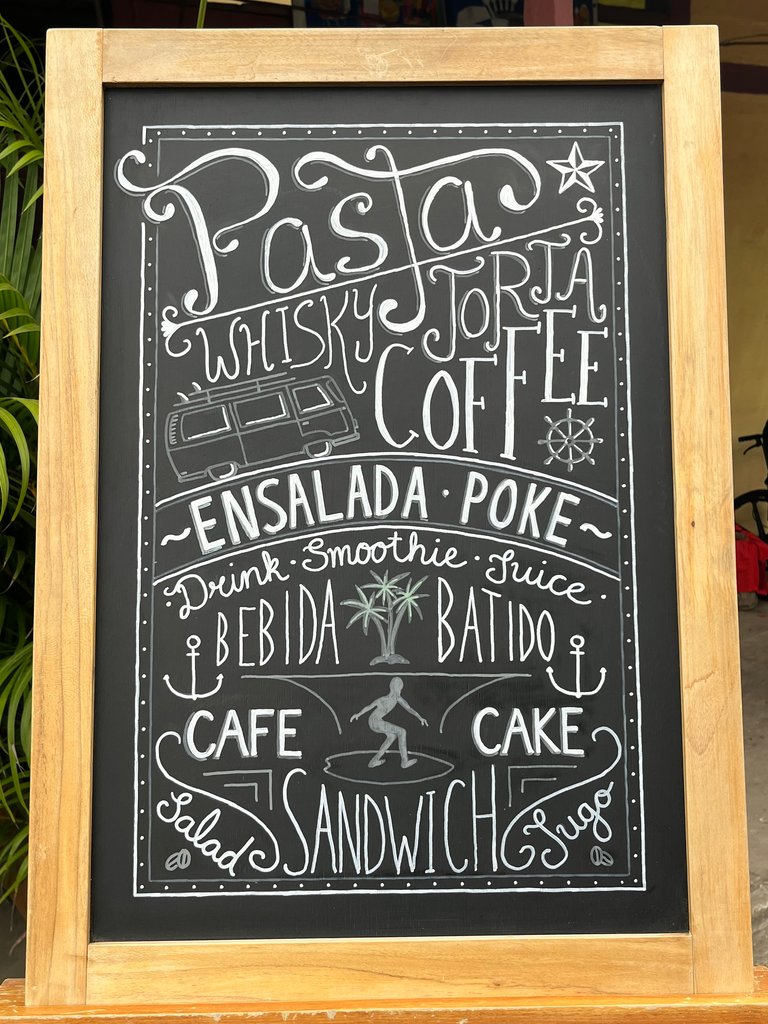 Pasta
WHISKY TORTA
COFFEE
~ENSALADA · POKE~
·Drink · Smoothie · Juice·
BEBIDA BATIDO
CAFE CAKE
Salad SANDWICH Jugo